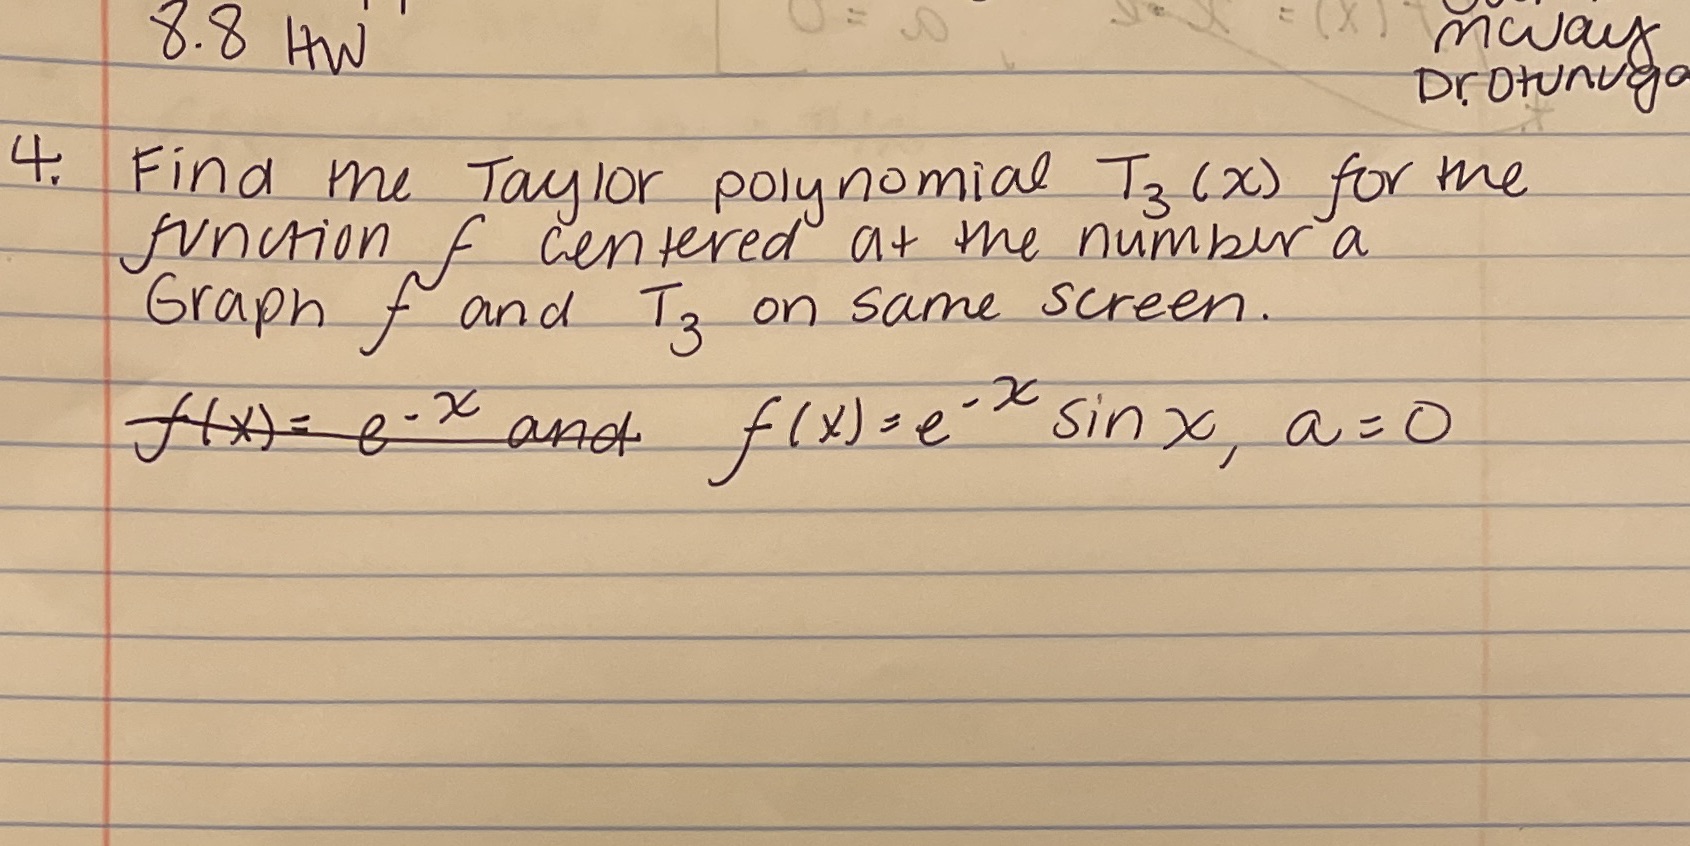 8.8 HW
mway
Dr. Otunuga
4. Find the Taylor polynomial T₃(x) for the
function f centered at the number a
Graph f and T₃ on same screen.
f(x) = e⁻ˣ and f(x) = e⁻ˣ sin x, a = 0